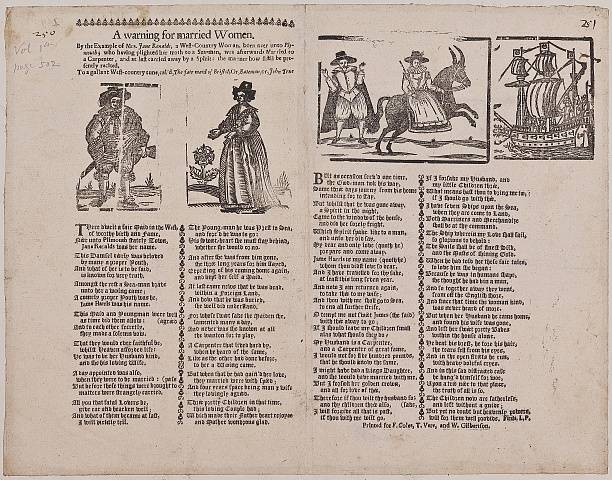 251
250
Vol 1st
page 502
A warning for married Women.
By the Example of Mrs. Jane Renalds, a West-Country Woman, born neer unto Ply-
mouth; who having plighted her troth to a Seaman, was afterwards Married to
a Carpenter, and at last carried away by a Spirit: the manner how shall be pre-
sently recited.
To a gallant West-country tune, call'd, The fair maid of Bristol, Or, Bateman, or, John True
There dwelt a fair Maid in the West,
of worthy birth and Fame,
Neer unto Plimouth stately Town,
Jane Renalds was her name.
This Damsel dearly was beloved
by many a proper Youth,
And what of her is to be said,
is known for very truth.
Amongst the rest a Sea-man brave
unto her a wooing came;
A comely proper Youth was he,
James Harris was his name.
This Maid and Youngman were
an time did them allow: (agreed
And to each other secretly,
they made a solemn vow.
That they would ever faithful be,
whilst Heaven afford life:
He was to be her Husband kind,
and she his loving Wife.
A day appointed was also,
when they were to be married:
But before these things were brought to
matters were strangely carried. (pass
All you that faithful Lovers be,
give ear and hearken well;
And what of them became at last,
I will directly tell.
The Young-man he was Prest to Sea,
and forc'd he was to go:
His sweet-heart she must stay behind,
whether she would or no.
And after he was from her gone,
she three long years for him stayed,
Expecting of his coming home again,
and kept her self a Maid.
At last came news that he was dead,
within a Forraign Land,
And how that he was buried,
she well did understand.
For whose sweet sake the Maiden she
lamented many a day,
And never was she known at all
the wanton for to play.
A Carpenter that lived hard by,
when he heard of the same,
Like as the other had done before,
to her a Wooing came.
But when that he had gain'd her love,
they married were with speed;
And four years space being man & wife
they lovingly agreed.
Three pretty Children in that time,
this loving Couple had;
Which made their Father heart rejoyce
and Mother wondrous glad.
But as occasion serv'd one time,
the Good-man took his way,
Some three days journey from his home
intending for to stay.
But whilst that he was gone away,
a Spirit in the night,
Came to the window of the house,
and did her sorely fright.
Which Spirit spake like to a man,
and unto her did say,
My dear and only love (quoth he)
prepare and come away.
James Harris is my name (quoth he)
whom thou didst love so dear,
And I have travelled for thy sake,
at least this long seven year.
And now I am returned again,
to take thee to my wife;
And thou with me shalt go to Sea,
to end all further strife.
O tempt me not sweet James (she said)
with thee away to go;
If I should leave my Children small
alas what should they do?
My Husband is a Carpenter,
and a Carpenter of great fame,
I would not for five hundred pounds,
that he should know the same.
I might have had a Kings Daughter,
and she would have married with me,
But I forsook her golden crown,
and all for love of thee.
Therefore if thou wilt thy husband for-
and thy children three also, (sake,
I will forgive thee all is past,
if thou with me will go.
If I forsake my Husband, and
my little Children three,
What means hast thou to bring me to,
if I should go with thee.
I have seven Ships upon the Sea,
when they are come to Land,
Both Marriners and Merchandise
shall be at thy command.
The Ship wherein my Love shall sail,
is glorious to behold:
The Sails shall be of finest Silk,
and the Mast of shining Gold.
When he had told her these fair tales,
to love him she began:
Because he was in humane shape,
she thought he had bin a man.
And so together away they went,
from off the English shore,
And since that time the woman kind,
was never heard of more.
But when her Husband he came home,
and found his wife was gone,
And left her sweet pretty Babes
within the house alone.
He beat his brest, he tore his hair,
the tears fell from his eyes,
And in the open streets he run,
with heavy doleful cryes.
And in this sad distracted case
he hang'd himself for woe,
Upon a tree neer to that place,
the truth of all is so.
The Children now are fatherless,
and left without a guide;
But yet no doubt the heavenly powers,
will for them well provide. Finis L.P.
Printed for F. Coles, T. Vere, and W. Gilbertson.